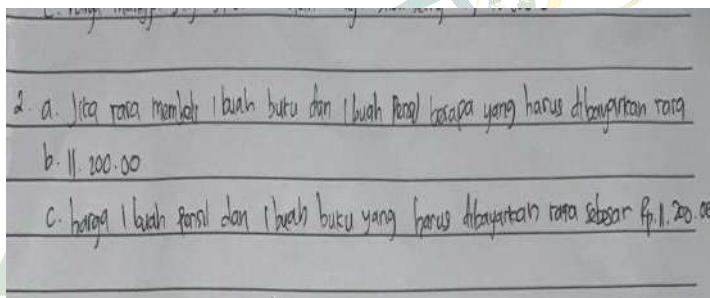 2. a. Jika rara membeli 1 buah buku dan 1 buah Pensil berapa yang harus dibayarkan rara
b. 11.200.00
C. harga 1 buah Pensil dan 1 buah buku yang harus dibayarkan rara sebesar Rp.11.200.00